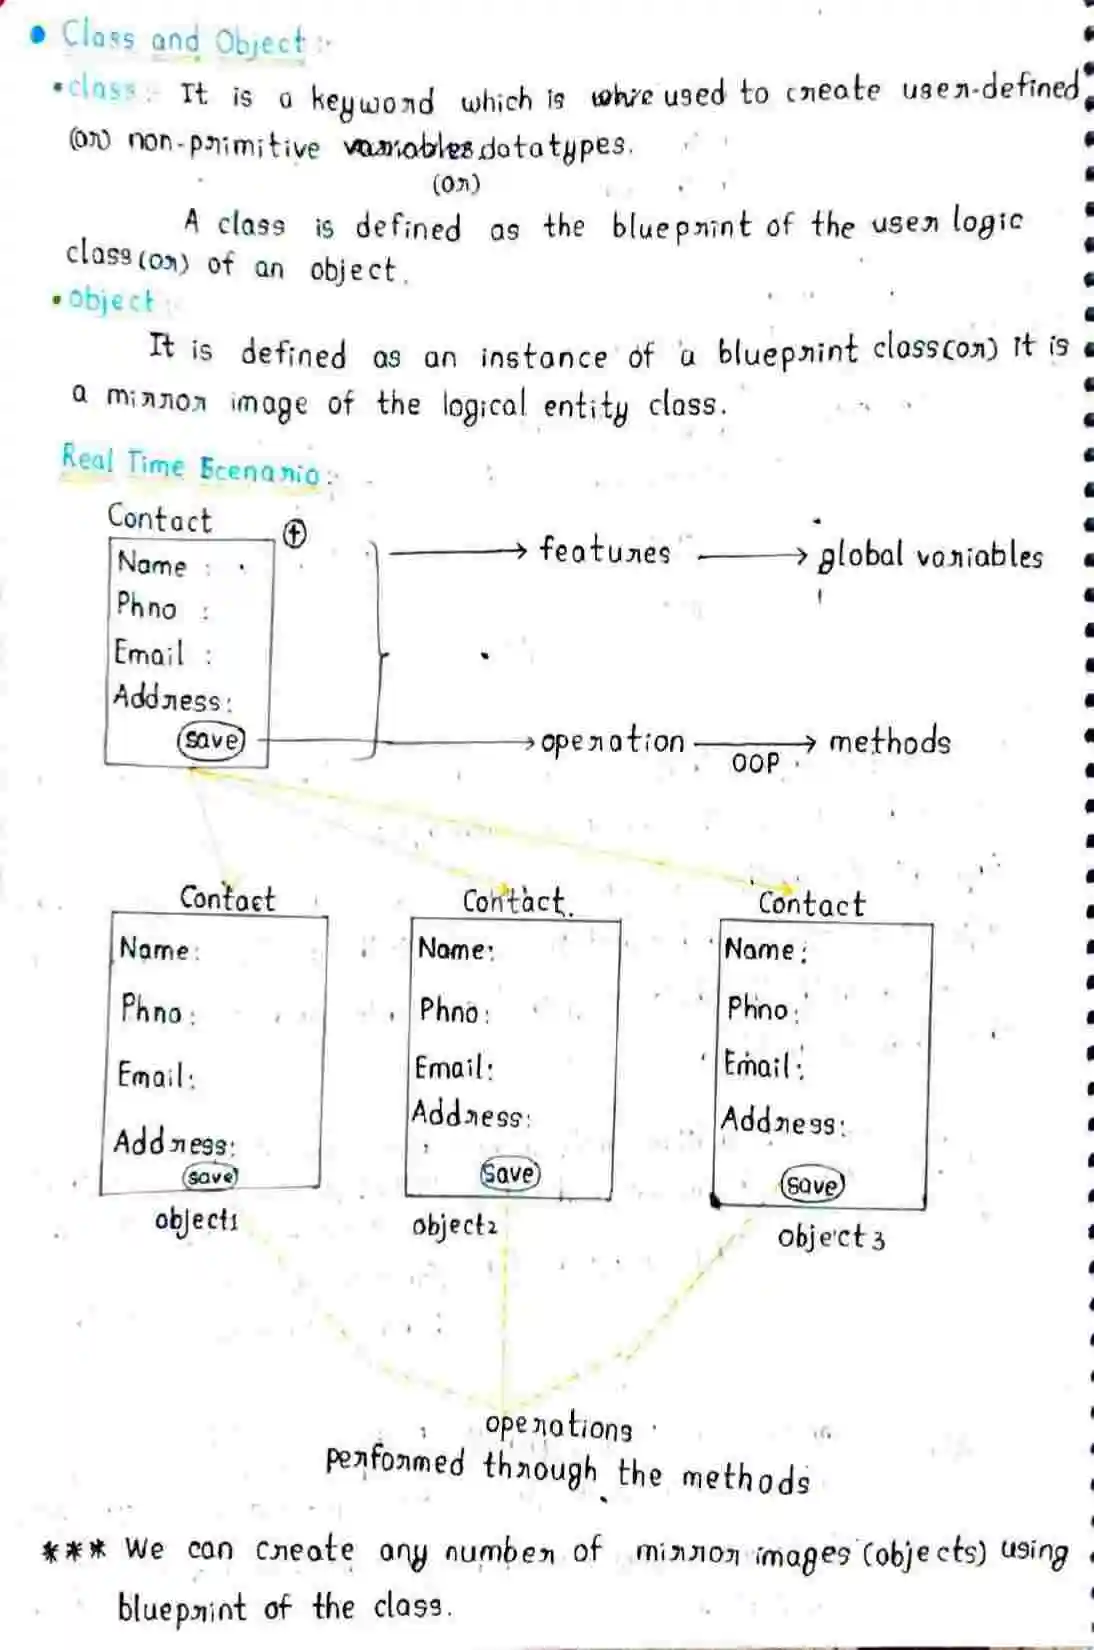 Class and Object :-
• class :- It is a keyword which is used to create user-defined
(or) non-primitive datatypes.
(or)
A class is defined as the blueprint of the user logic
class (or) of an object.
• object :-
It is defined as an instance of a blueprint class (or) it is
a mirror image of the logical entity class.
Real Time Scenario :-
Contact
Name :
Phno :
Email :
Address:
save
features → global variables
operation → methods
OOP
Contact
Name:
Phno:
Email:
Address:
save
object1
Contact
Name:
Phno:
Email:
Address:
save
object2
Contact
Name:
Phno:
Email:
Address:
save
object3
operations
performed through the methods
*** We can create any number of mirror images (objects) using
blueprint of the class.